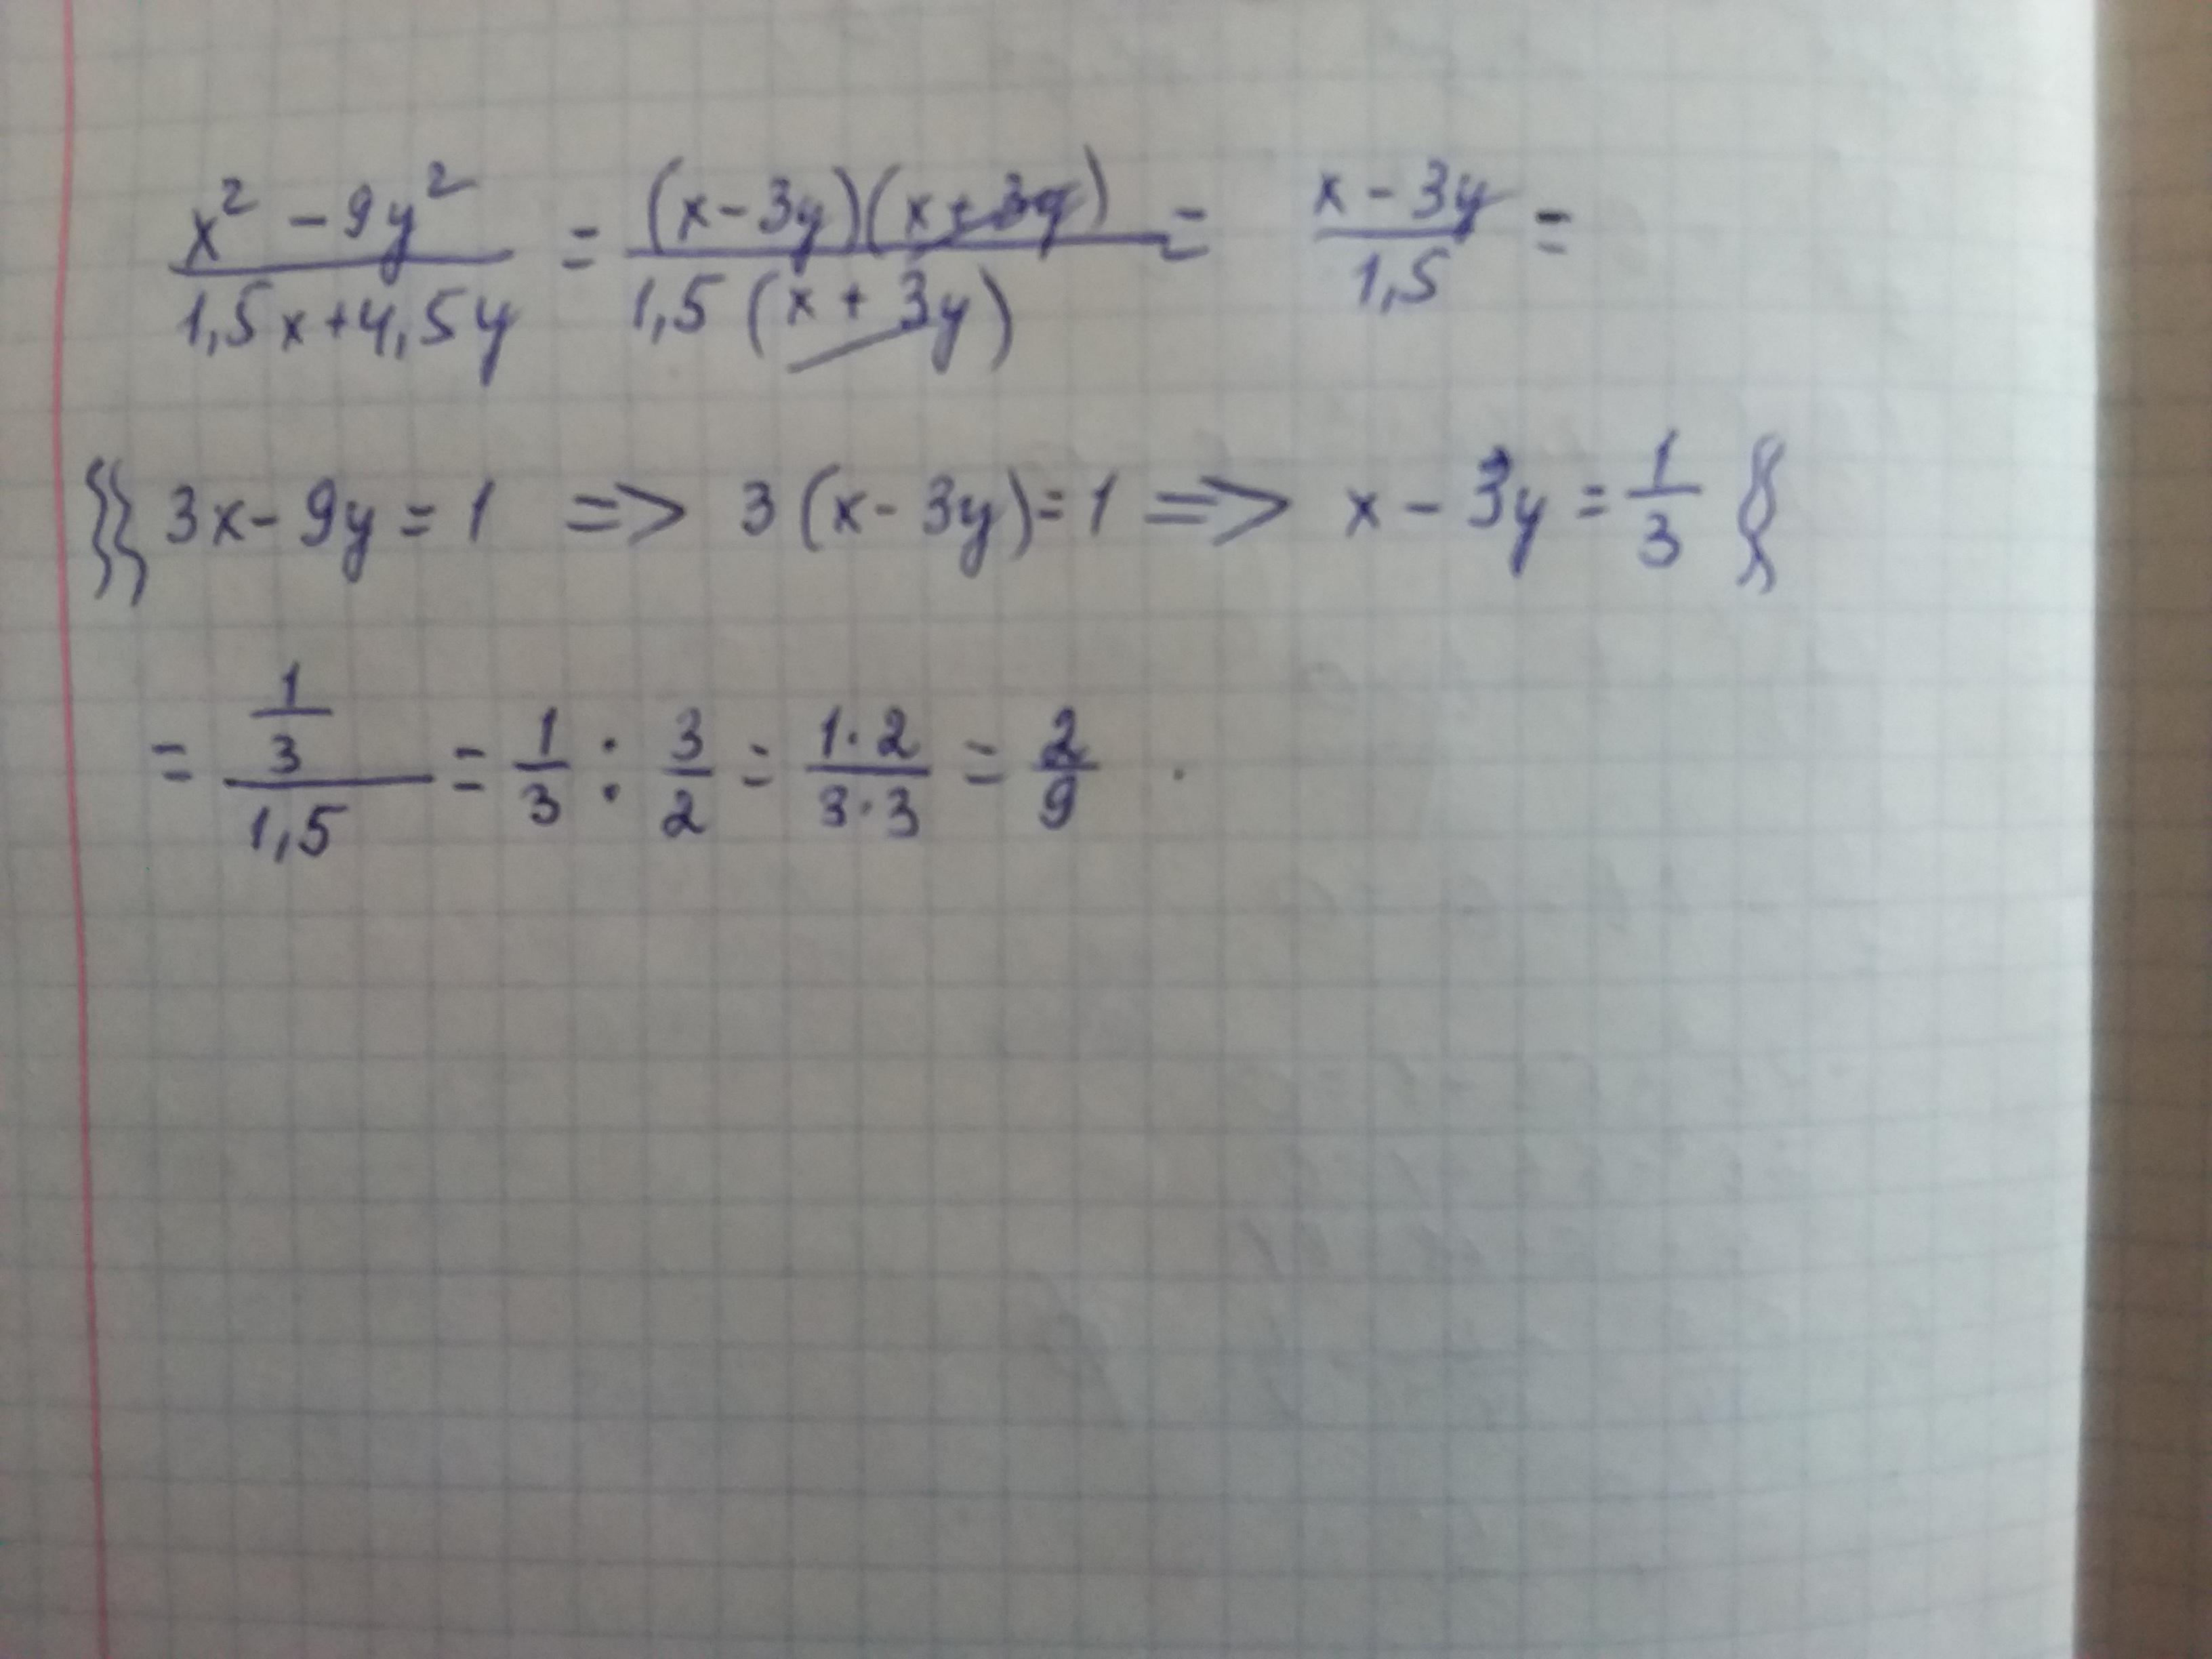 x² - 9y² / 1,5x + 4,5y = (x - 3y)(x + 3y) / 1,5 (x + 3y) = x - 3y / 1,5 =
}} 3x - 9y = 1 => 3 (x - 3y) = 1 => x - 3y = 1/3 {{
= 1/3 / 1,5 = 1/3 : 3/2 = 1·2 / 3·3 = 2/9 .